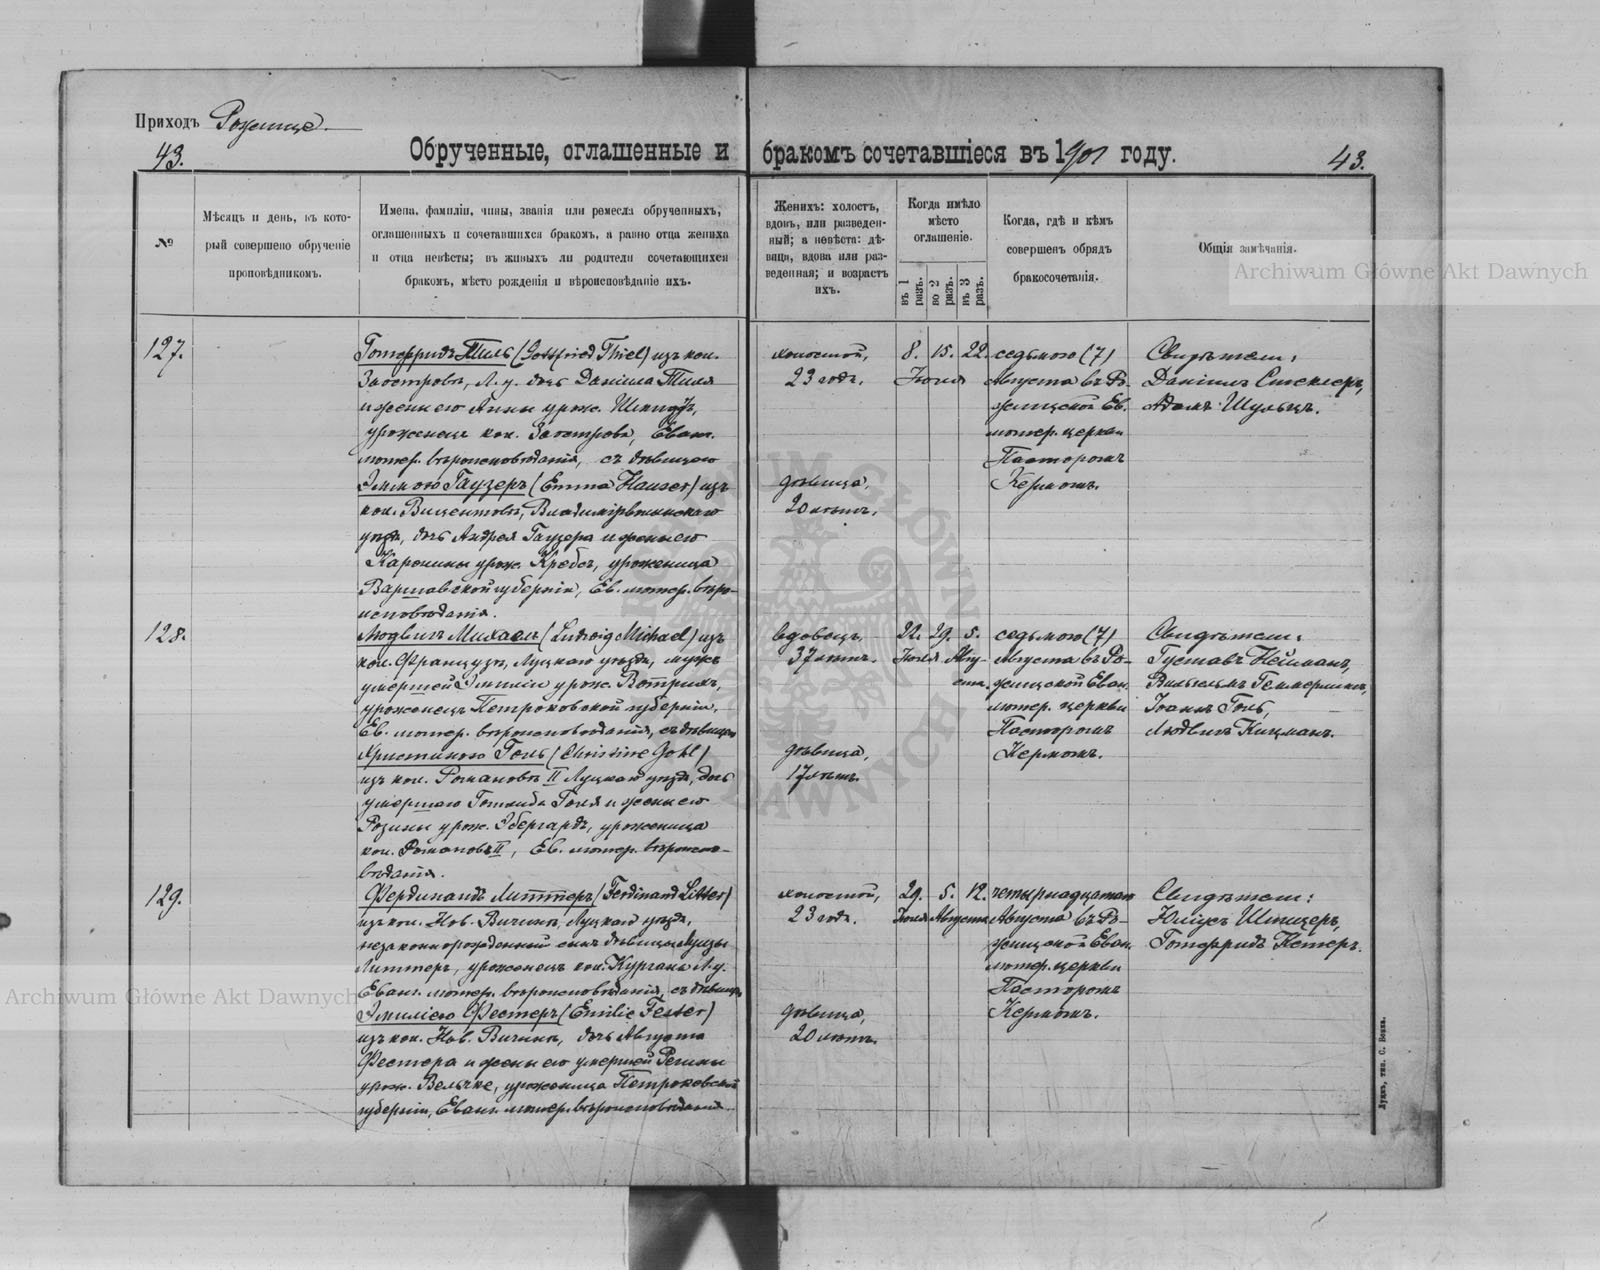 Приходъ Рожище.
43.
Обрученные, оглашенные и бракомъ сочетавшіеся въ 1901 году.
43.
№
Мѣсяцъ и день, въ кото-
рый совершено обрученіе
проповѣдникомъ.
Имена, фамиліи, чины, званія или ремесла обрученныхъ,
оглашенныхъ и сочетавшихся бракомъ, а равно отца жениха
и отца невѣсты; въ живыхъ ли родители сочетающихся
бракомъ, мѣсто рожденія и вѣроисповѣданіе ихъ.
Женихъ: холостъ,
вдовъ, или разведен-
ный; а невѣста: дѣ-
вица, вдова или раз-
веденная; и возрастъ
ихъ.
Когда имѣло
мѣсто
оглашеніе.
въ 1
разъ.
во 2
разъ.
въ 3
разъ.
Когда, гдѣ и кѣмъ
совершенъ обрядъ
бракосочетанія.
Общія замѣчанія.
Archiwum Główne Akt Dawnych
127.
Готфридъ Тиль (Gottfried Thiel) изъ кол.
Заостровъ, Л. у. сынъ Даніила Тиля
и жены его Анны урож. Шмидтъ,
уроженецъ кол. Заострова, Еванг.
лютер. вѣроисповѣданія, съ дѣвицею
Эммою Гаузеръ (Emma Hauser) изъ
кол. Вицентовъ, Владимірволынскаго
уѣзда, дочь Андрея Гаузера и жены его
Каролины урож. Кребсъ, уроженица
Варшавской губерніи, Ев. лютер. вѣро-
исповѣданія.
холостой,
23 годъ.
дѣвица,
20 лѣтъ.
8. 15. 22.
Іюля
седьмого (7)
Августа въ Ро-
жищской Ев.
лютер. церкви
Пасторомъ
Кермомъ.
Свидѣтели:
Даніилъ Стеклеръ,
Адамъ Шульцъ.
128.
Людвигъ Михаель (Ludwig Michael) изъ
кол. Французъ, Луцкаго уѣзда, мужъ
умершей Эмиліи урож.
уроженецъ Петроковской губерніи,
Ев. лютер. вѣроисповѣданія, съ дѣвицею
Христиною Голь (Christine Gohl)
изъ кол. Романовъ II Луцкаго уѣзда, дочь
умершаго Готлиба Голя и жены его
Розины урож. Эбергардъ, уроженица
кол. Романовъ II, Ев. лютер. вѣроиспо-
вѣданія.
вдовецъ,
37 лѣтъ.
дѣвица,
17 лѣтъ.
22. 29. 5.
Іюля Авгу-
ста.
седьмого (7)
Августа въ Ро-
жищской Еван.
лютер. церкви
Пасторомъ
Кермомъ.
Свидѣтели:
Густавъ Нейманъ,
Вильгельмъ Геммерлингъ,
Іоганъ Голь,
Людвигъ Кицманъ.
129.
Фердинандъ Литтеръ (Ferdinand Litter)
изъ кол. Нов. Вичинъ, Луцкаго уѣзда,
незаконнорожденный сынъ дѣвицы Луизы
Литтеръ, уроженецъ кол. Курганъ Л. у.
Еванг. лютер. вѣроисповѣданія, съ дѣвицею
Эмиліею Фестеръ (Emilie Fester)
изъ кол. Нов. Вичинъ, дочь Августа
Фестера и жены его умершей Регины
урож. Вельчке, уроженица Петроковской
губерніи, Еванг. лютер. вѣроисповѣданія.
холостой,
23 годъ.
дѣвица,
20 лѣтъ.
29. 5. 12.
Іюля Августа
четырнадцатаго
Августа въ Ро-
жищской Еван.
лютер. церкви
Пасторомъ
Кермомъ.
Свидѣтели:
Юліусъ Шпицеръ,
Готфридъ Кетеръ.
Archiwum Główne Akt Dawnych
Луцкъ, тип. С. Бонка.